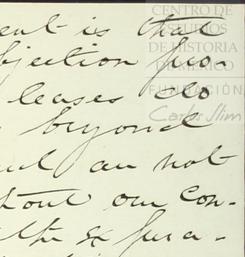 ent is that
bjection pro-
leases do
beyond
not
hout our con-
CENTRO DE
ESTUDIOS
DE HISTORIA
DE MÉXICO
FUNDACIÓN
Carlos Slim